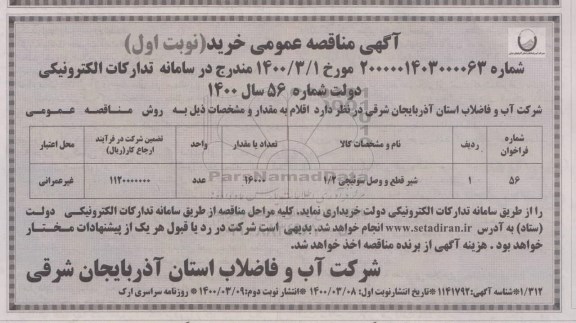 آگهی مناقصه عمومی خرید(نوبت اول)
شماره ۲۰۰۰۰۰۱۴۰۳۰۰۰۰۶۳ مورخ ۱۴۰۰/۳/۱ مندرج در سامانه تدارکات الکترونیکی
دولت شماره ۵۶ سال ۱۴۰۰
شرکت آب و فاضلاب استان آذربایجان شرقی در نظر دارد اقلام به مقدار و مشخصات ذیل به روش مناقصه عمومی
شماره فراخوان ردیف نام و مشخصات کالا تعداد یا مقدار واحد تضمین شرکت در فرآیند ارجاع کار(ریال) محل اعتبار
۵۶ ۱ شیر قطع و وصل سوئیچی ۱/۲ ۱۶۰۰۰ عدد ۱۱۲۰۰۰۰۰۰۰ غیرعمرانی
را از طریق سامانه تدارکات الکترونیکی دولت خریداری نماید. کلیه مراحل مناقصه از طریق سامانه تدارکات الکترونیکی دولت
(ستاد) به آدرس www.setadiran.ir انجام خواهد شد. بدیهی است شرکت در رد یا قبول هر یک از پیشنهادات مختار
خواهد بود . هزینه آگهی از برنده مناقصه اخذ خواهد شد.
شرکت آب و فاضلاب استان آذربایجان شرقی
۱/۳۱۲*شناسه آگهی:۱۱۴۱۷۹۲*تاریخ انتشارنوبت اول: ۱۴۰۰/۰۳/۰۸ *انتشار نوبت دوم:۱۴۰۰/۰۳/۰۹* روزنامه سراسری ارک
ParsNamadData